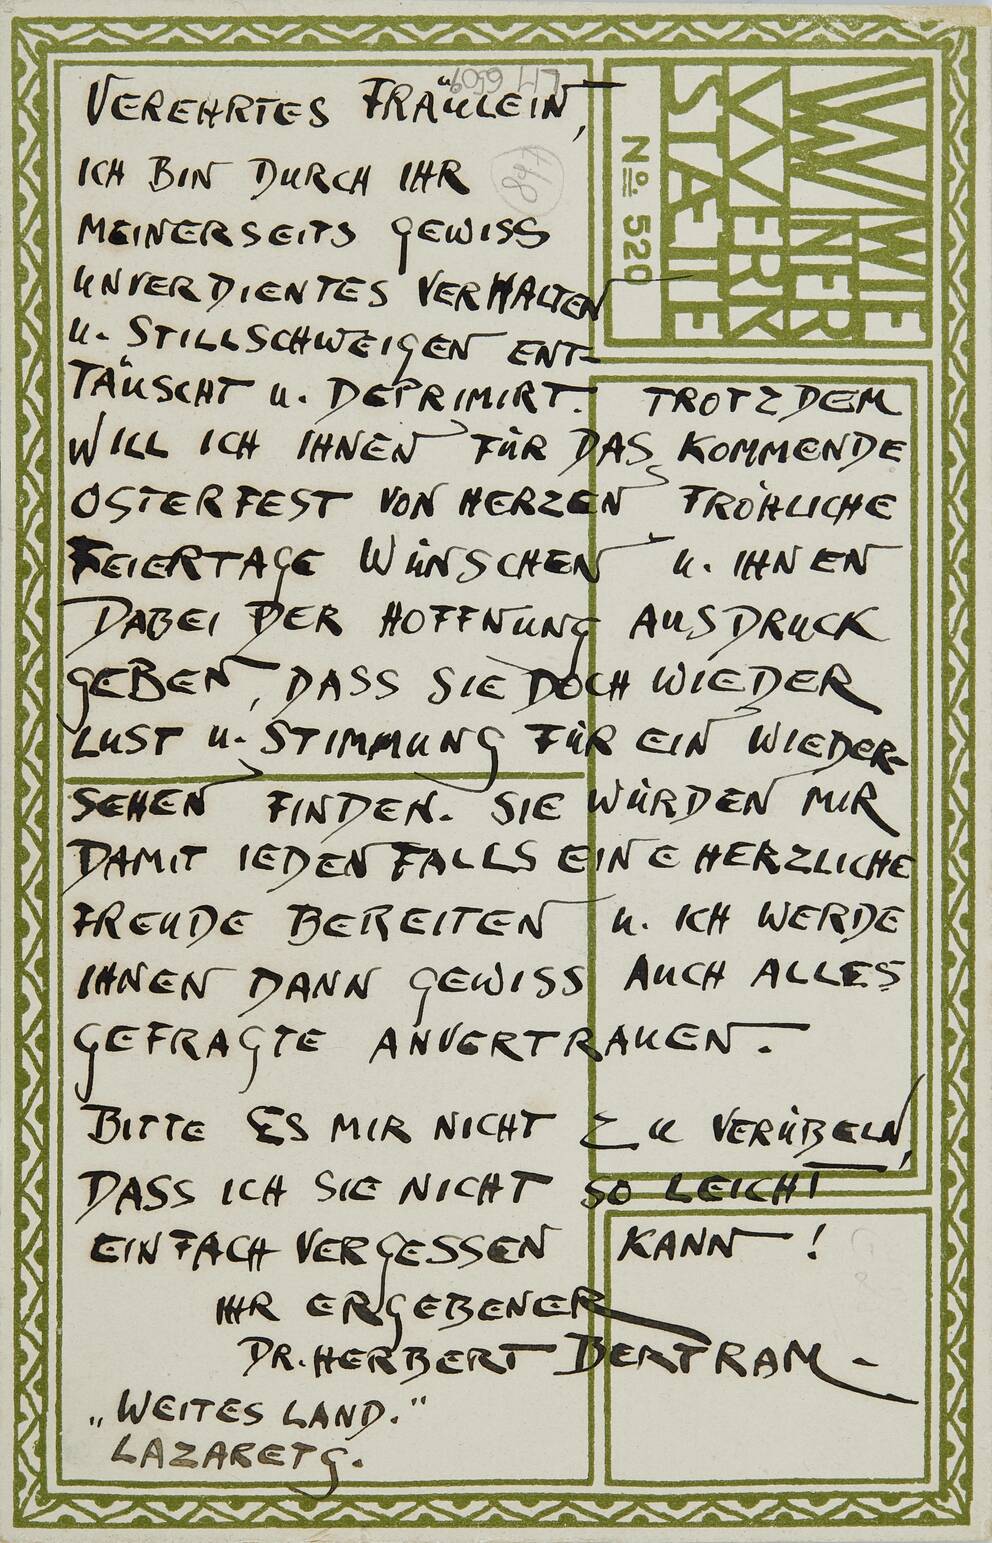 VEREHRTES FRÄULEIN,
ICH BIN DURCH IHR
MEINERSEITS GEWISS
UNVERDIENTES VERHALTEN
U. STILLSCHWEIGEN ENT-
TÄUSCHT U. DEPRIMIRT. TROTZDEM
WILL ICH IHNEN FÜR DAS KOMMENDE
OSTERFEST VON HERZEN FRÖHLICHE
FEIERTAGE WÜNSCHEN U. IHNEN
DABEI DER HOFFNUNG AUSDRUCK
GEBEN, DASS SIE DOCH WIEDER
LUST U. STIMMUNG FÜR EIN WIEDER-
SEHEN FINDEN. SIE WÜRDEN MIR
DAMIT IEDENFALLS EINE HERZLICHE
FREUDE BEREITEN U. ICH WERDE
IHNEN DANN GEWISS AUCH ALLES
GEFRAGTE ANVERTRAUEN.
BITTE ES MIR NICHT ZU VERÜBELN,
DASS ICH SIE NICHT SO LEICHT
EINFACH VERGESSEN KANN!
IHR ERGEBENER
DR. HERBERT BERTRAM –
„WEITES LAND."
LAZARETG.
WIENER
WERK
STÆTTE
No. 520
LM 6509